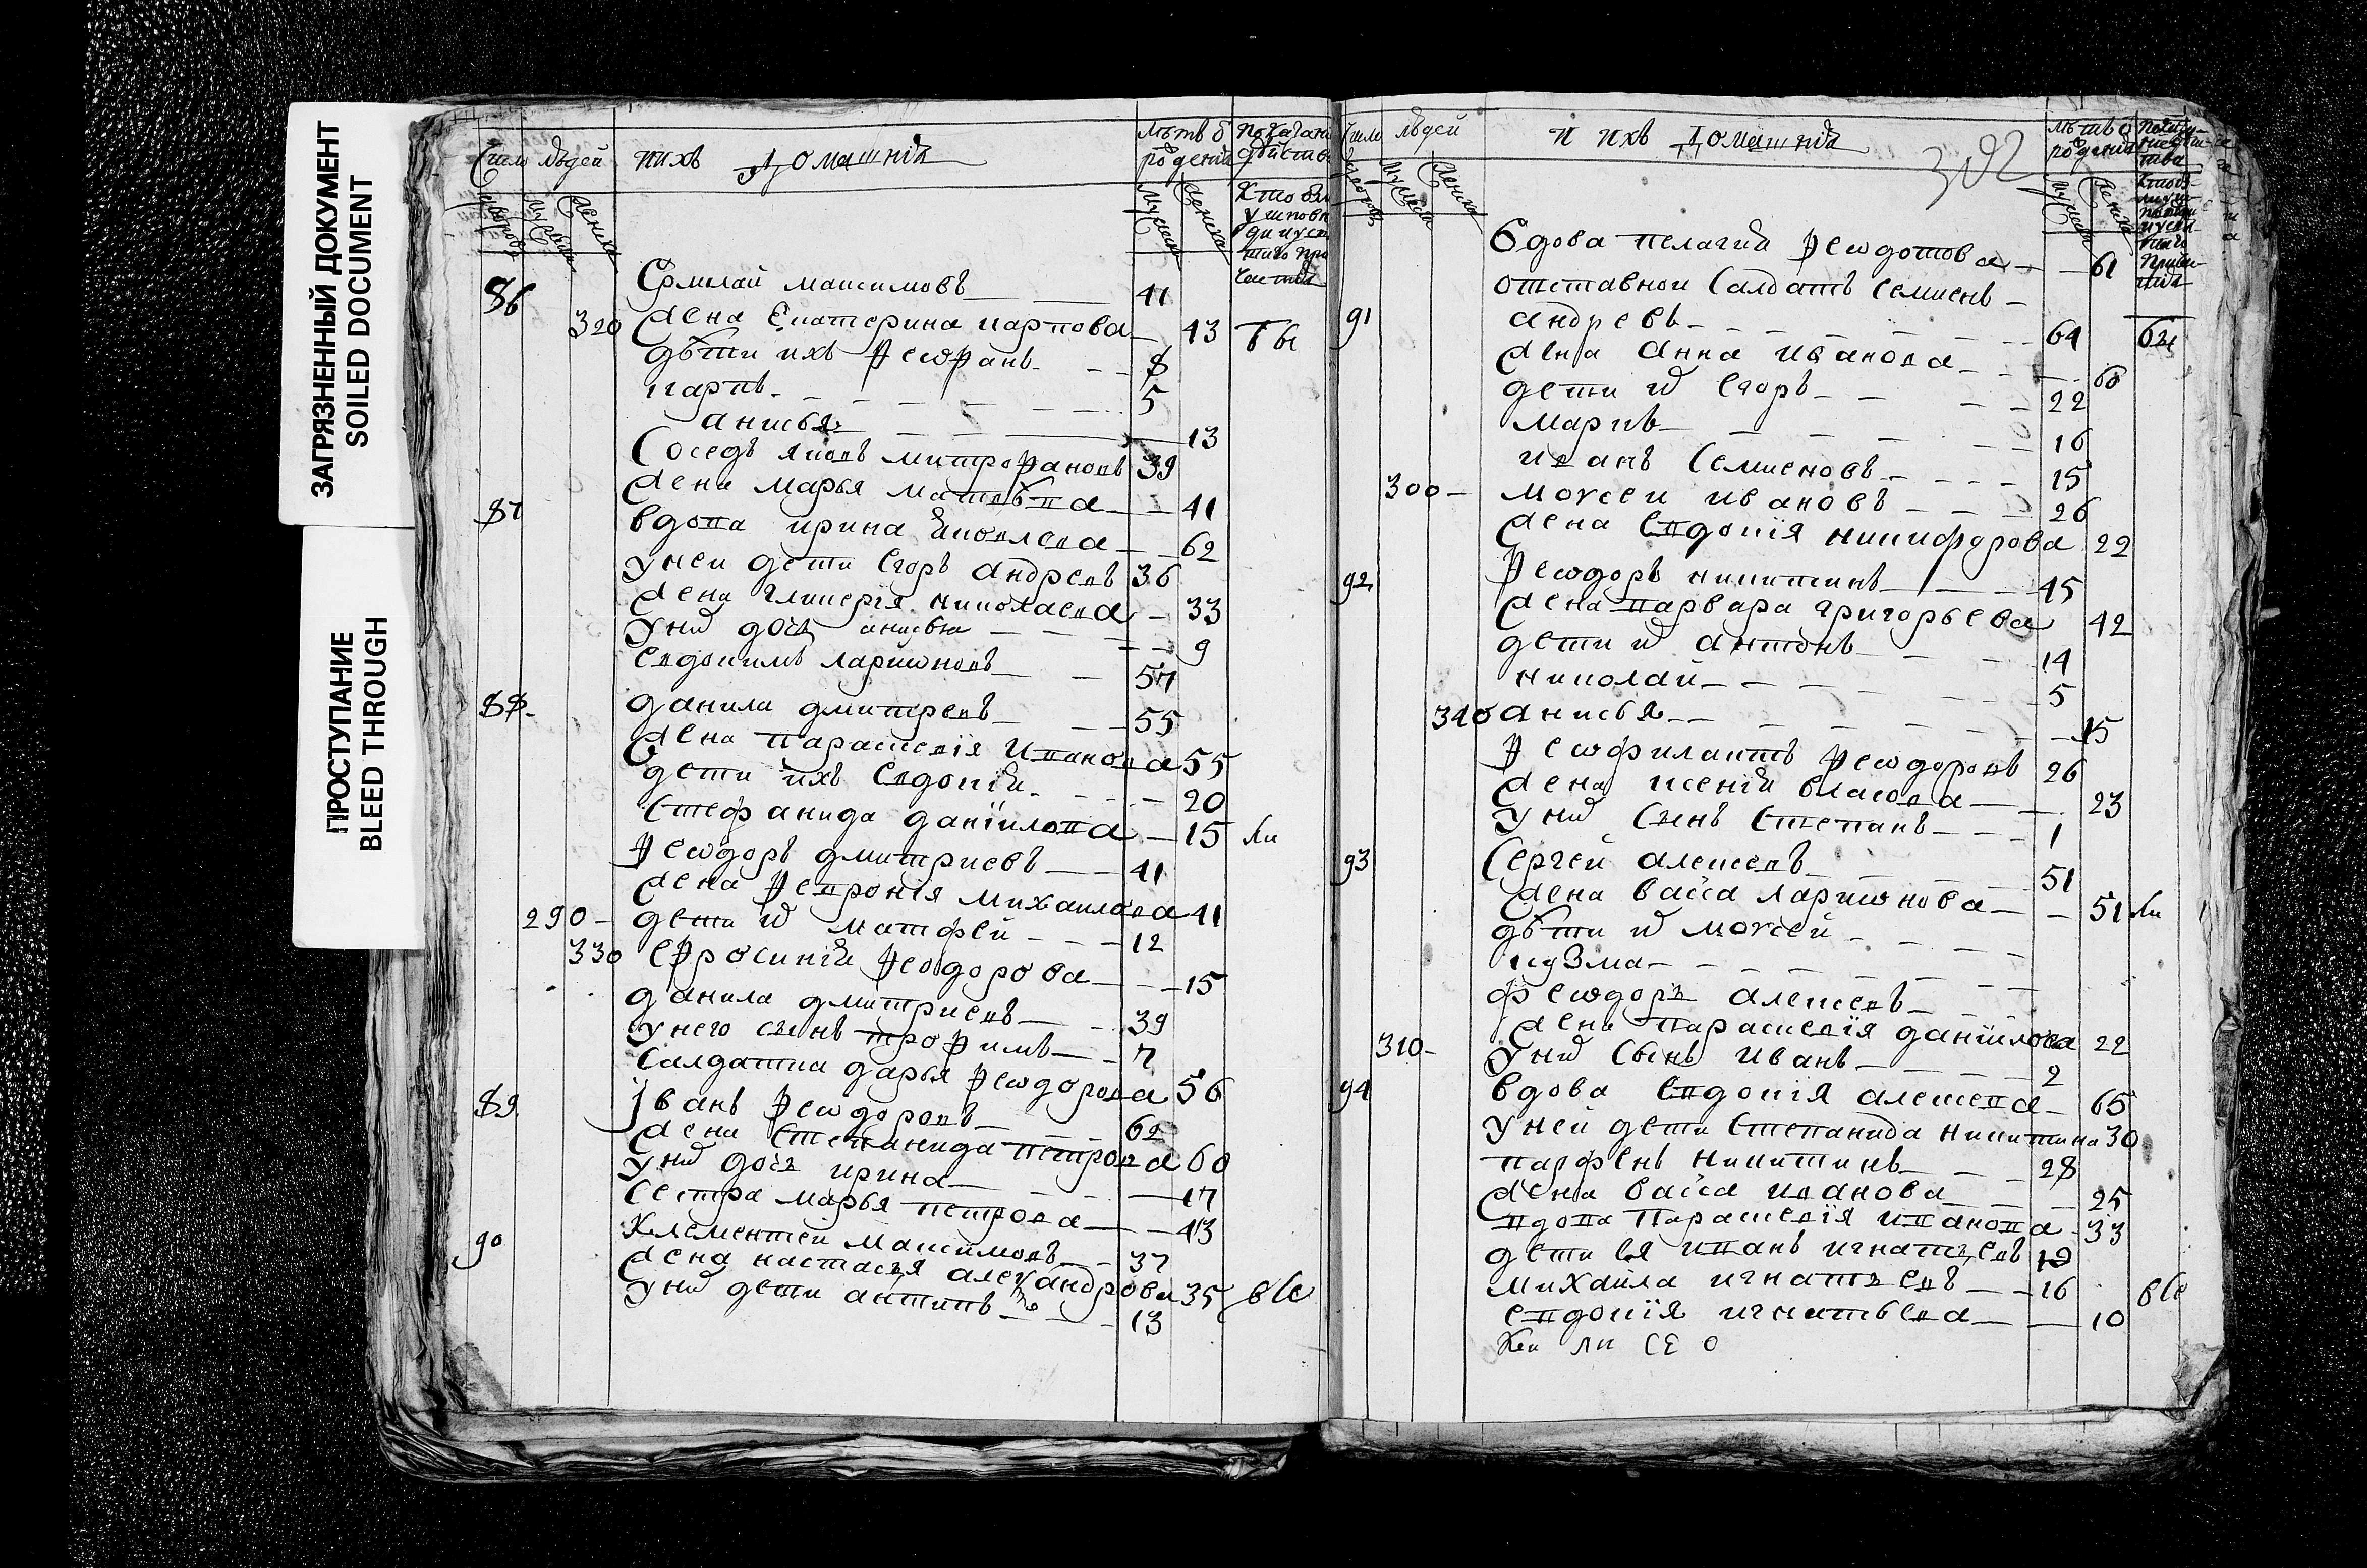 ЗАГРЯЗНЕННЫЙ ДОКУМЕНТ
SOILED DOCUMENT
ПРОСТУПАНИЕ
BLEED THROUGH
Число людей и ихъ Домашнія
86 Ермилай маѯимовъ 41
320 жена Екатерина карпова 43
дѣти ихъ Ѳеѡѳанъ 8
карпъ 5
анисья 13
Соседъ яковъ митроѳановъ 39
жена марья матвѣва 41
87 вдова ирина яковлева 62
у неи дети Егоръ андреевъ 36
жена гликерія николаева 33
у нихъ дочь анисья 9
Евдокимъ Лариѡновъ 57
88 данила дмитревъ 55
жена Параскевія Иванова 55
дети ихъ Евдокия 20
Стефанида даніилова 15 ли
Ѳеѡдоръ дмитриевъ 41
жена Ѳевронія михаилова 41
290 дети и матфеи 12
330 Еѳросиния Ѳеодорова 15
данила дмитриевъ 39
у него сынъ троѳимъ 7
Салдатка дарья Ѳеѡдорова 56
89 Іванъ Ѳеѡдоровъ 62
жена Степанида петрова 60
у нихъ дочь ирина 17
Сестра марья петрова 43
90 Климентеи маѯимовъ 37
жена настасья алеѯандрова 35 все
у нихъ дети антипъ 13
Число людей и ихъ Домашнія
302
Вдова пелагия Ѳеѡдотова 61
91 отставнои Салдатъ Семионъ
андревъ 64
жена Анна Иванова 60
дети их Егоръ 22
маркъ 16
иванъ Семионовъ 15
300 моѵсеи ивановъ 26
жена Евдокія никифорова 22
92 Ѳеѡдоръ никитинъ 45
жена варвара григорьева 42
дети их антонъ 14
николаи 5
340 анисья 15
Ѳеѡфилактъ Ѳеѡдоровъ 26
жена ксения власова 23
у нихъ Сынъ Степанъ 1
93 Сергеи алеѯеевъ 51
жена васса лариѡнова 51 ли
дѣти их моѵсеи
кузма
феѡдоръ алеѯеевъ
жена параскевія даніилова 22
310 у нихъ Сынъ иванъ 2
94 вдова Евдокія алеѯеева 65
у неи дети Степанида никитина 30
парфенъ никитинъ 28
жена васса иванова 25
вдова Параскевія иванова 33
дети ея иванъ игнатьевъ
михаила игнатьевъ 16 все
евдокія игнатьева 10